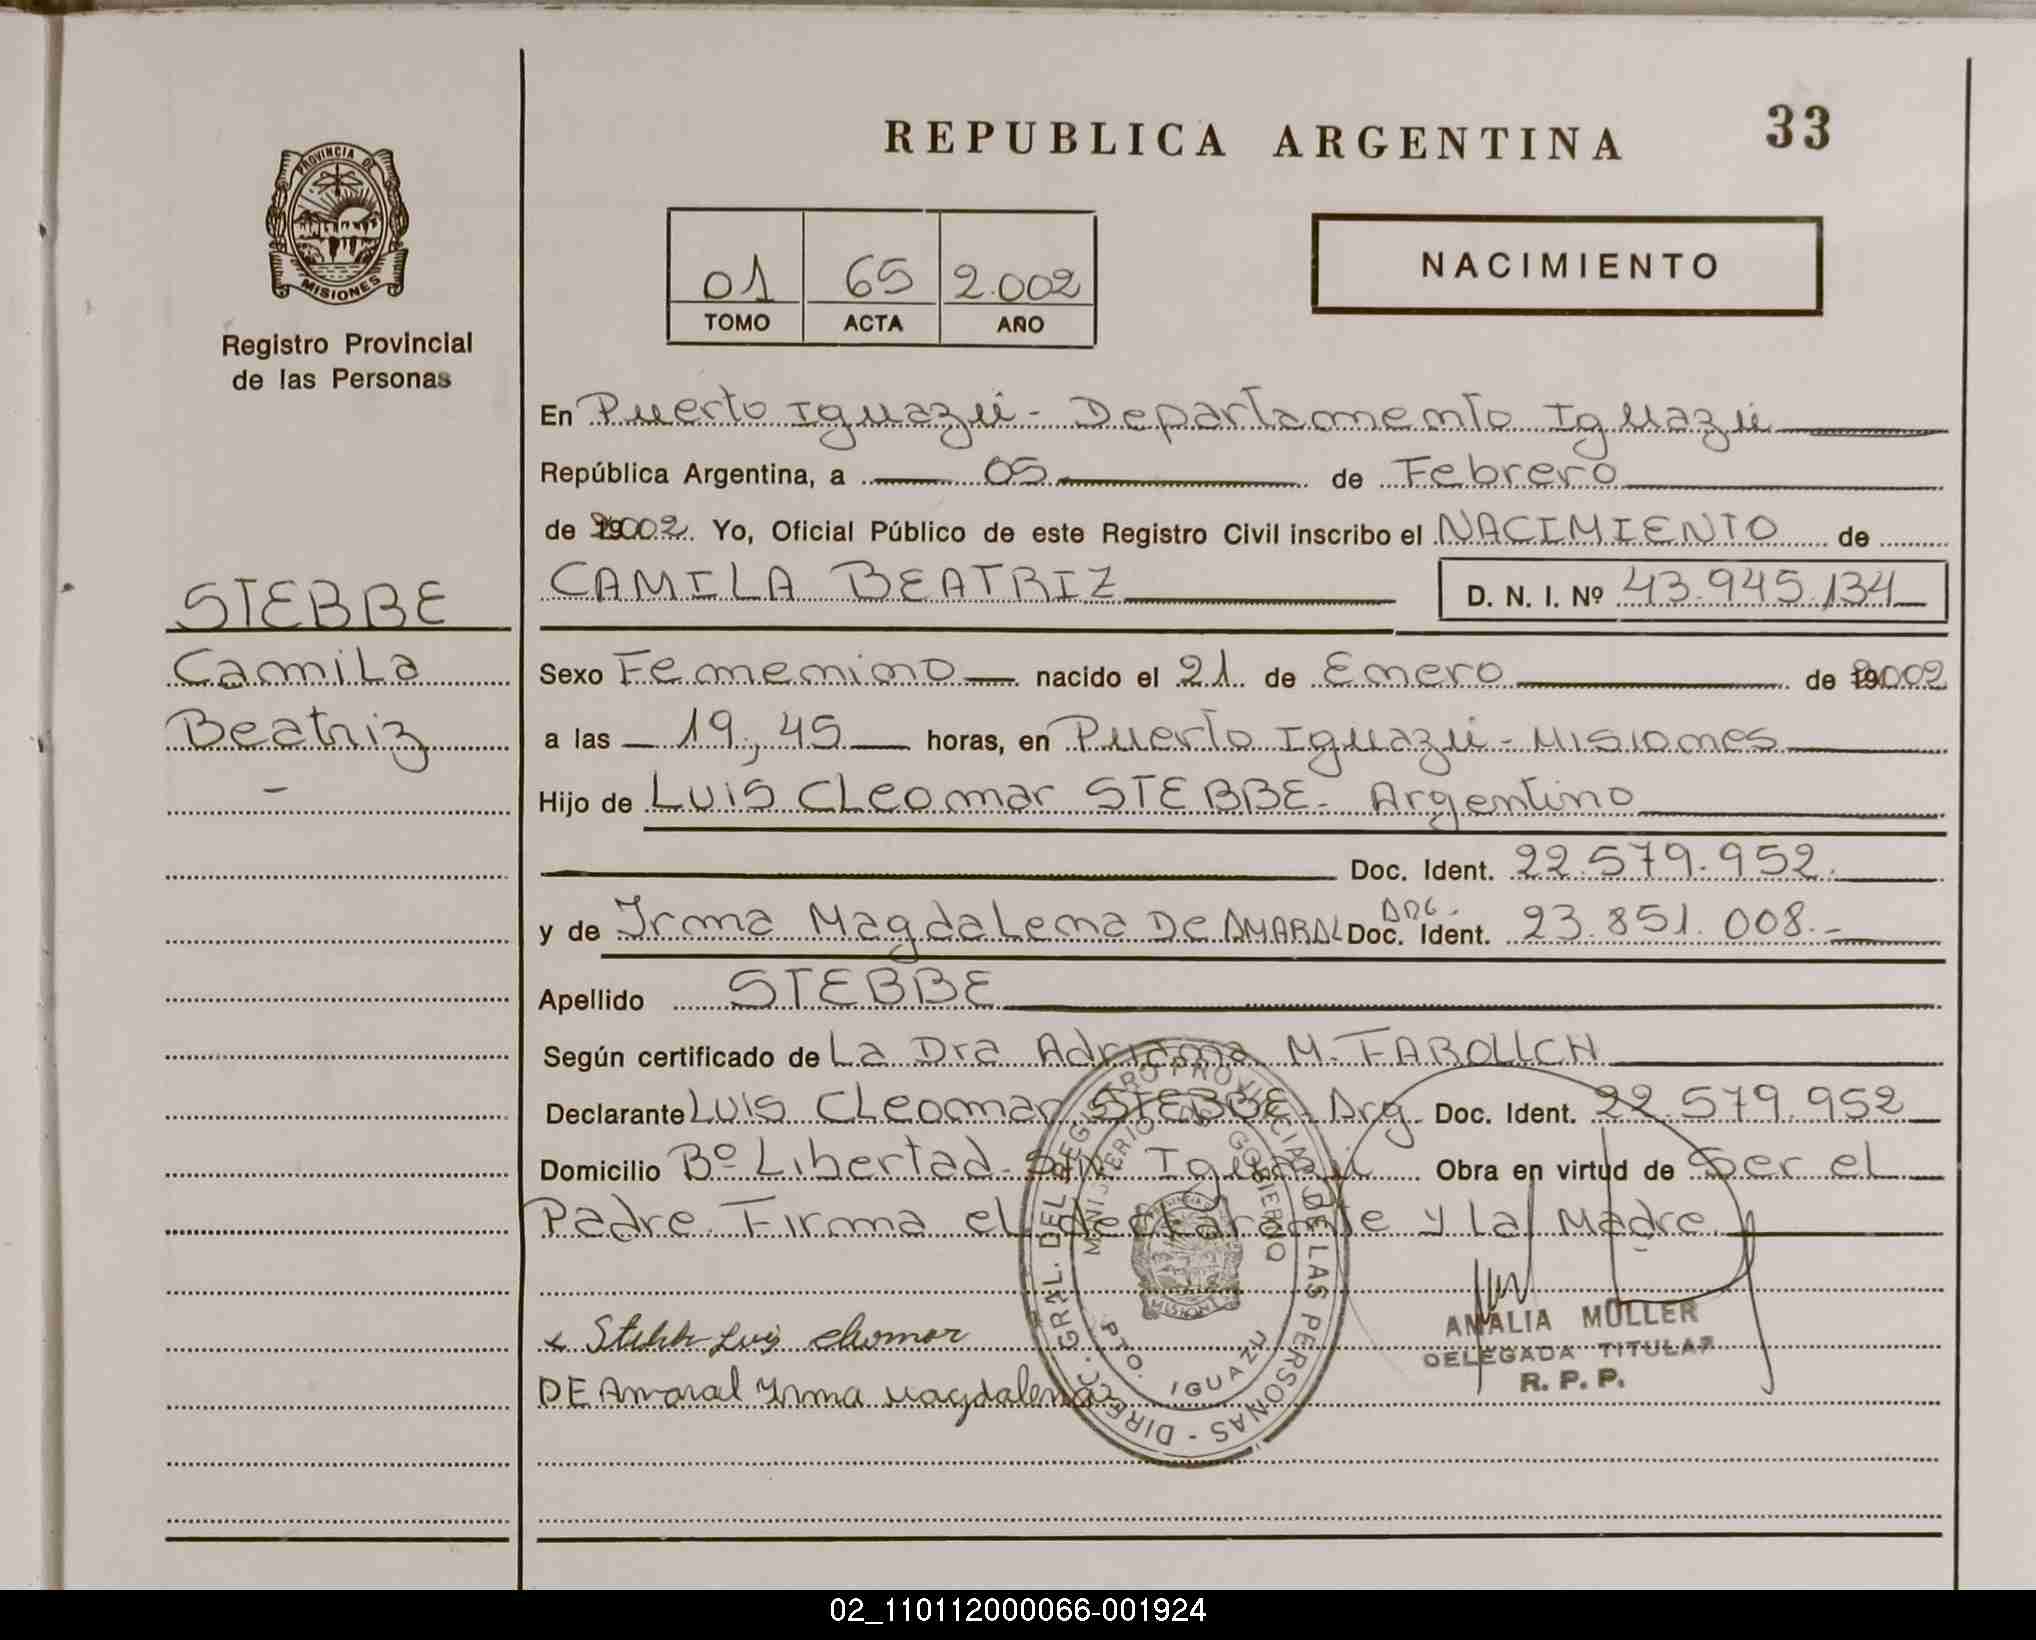 REPUBLICA ARGENTINA 33
PROVINCIA DE
MISIONES
Registro Provincial
de las Personas
01 65 2.002
TOMO ACTA AÑO
NACIMIENTO
En Puerto Iguazú - Departamento Iguazú
República Argentina, a 05 de Febrero
de 2002. Yo, Oficial Público de este Registro Civil inscribo el NACIMIENTO de
STEBBE
Camila
Beatriz
-
CAMILA BEATRIZ D. N. I. Nº 43.945.134
Sexo Femenino nacido el 21 de Enero de 2002
a las 19,45 horas, en Puerto Iguazú - Misiones
Hijo de Luis Cleomar STEBBE - Argentino
Doc. Ident. 22.579.952.
y de Irma Magdalena De AMARAL ARG. Doc. Ident. 23.851.008.-
Apellido STEBBE
Según certificado de La Dra Adriana M.
Declarante Luis Cleomar STEBBE - Arg. Doc. Ident. 22.579.952
Domicilio Bº Libertad Iguazú Obra en virtud de Ser el
Padre. Firma el declarante y la Madre.
x Stebbe Luis cleomar
DE Amaral Irma magdalena
DIREC. GRAL. DEL REGISTRO PROVINCIAL DE LAS PERSONAS -
MINISTERIO DE GOBIERNO
PTO. IGUAZU
AMALIA MÜLLER
DELEGADA TITULAR
R. P. P.
02_110112000066-001924